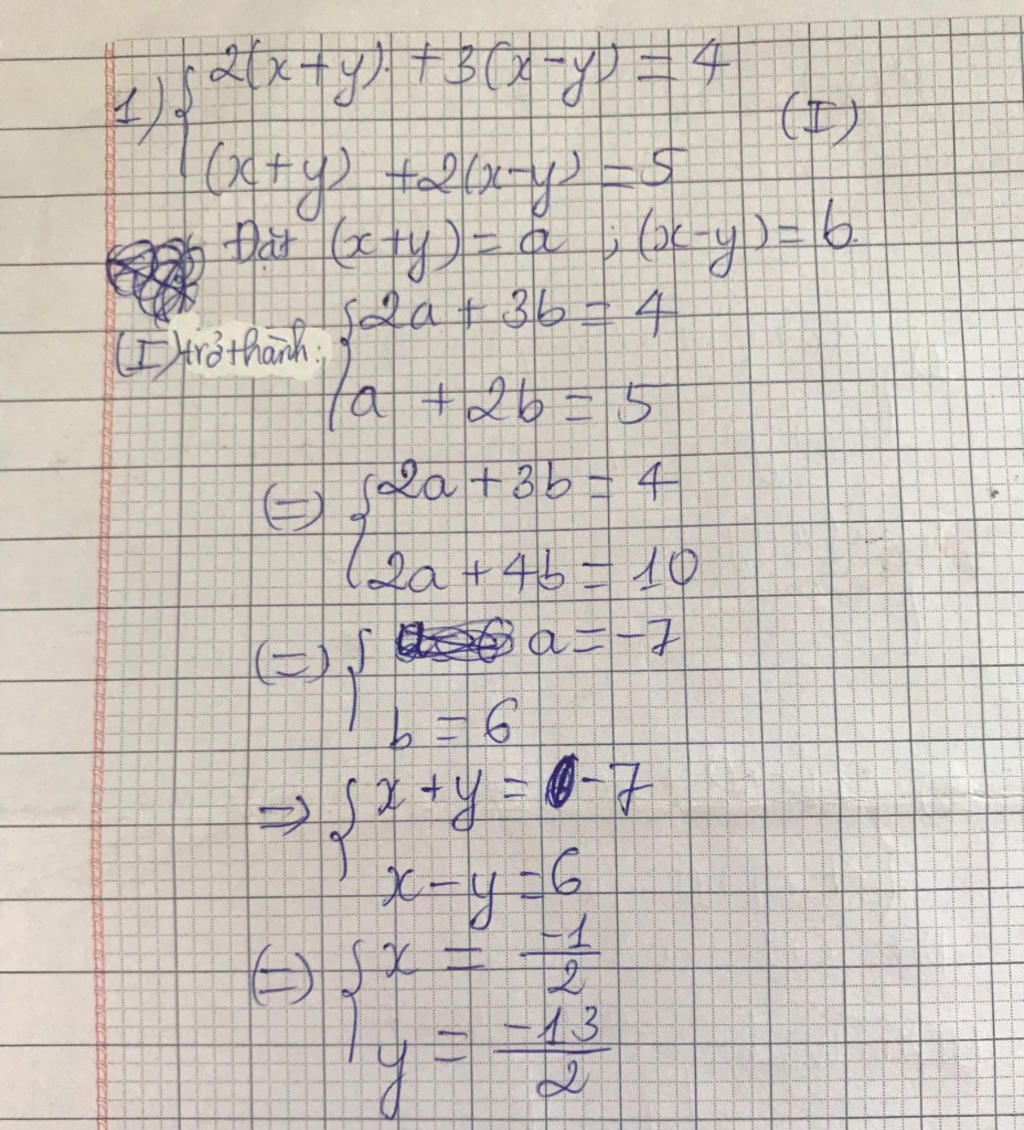 1) { 2(x+y) + 3(x-y) = 4
(I)
(x+y) + 2(x-y) = 5
Đặt (x+y) = a ; (x-y) = b.
(I) trở thành: { 2a + 3b = 4
a + 2b = 5
(=) { 2a + 3b = 4
2a + 4b = 10
(=) { a = -7
b = 6
=> { x + y = -7
x - y = 6
(=) { x = -1/2
y = -13/2